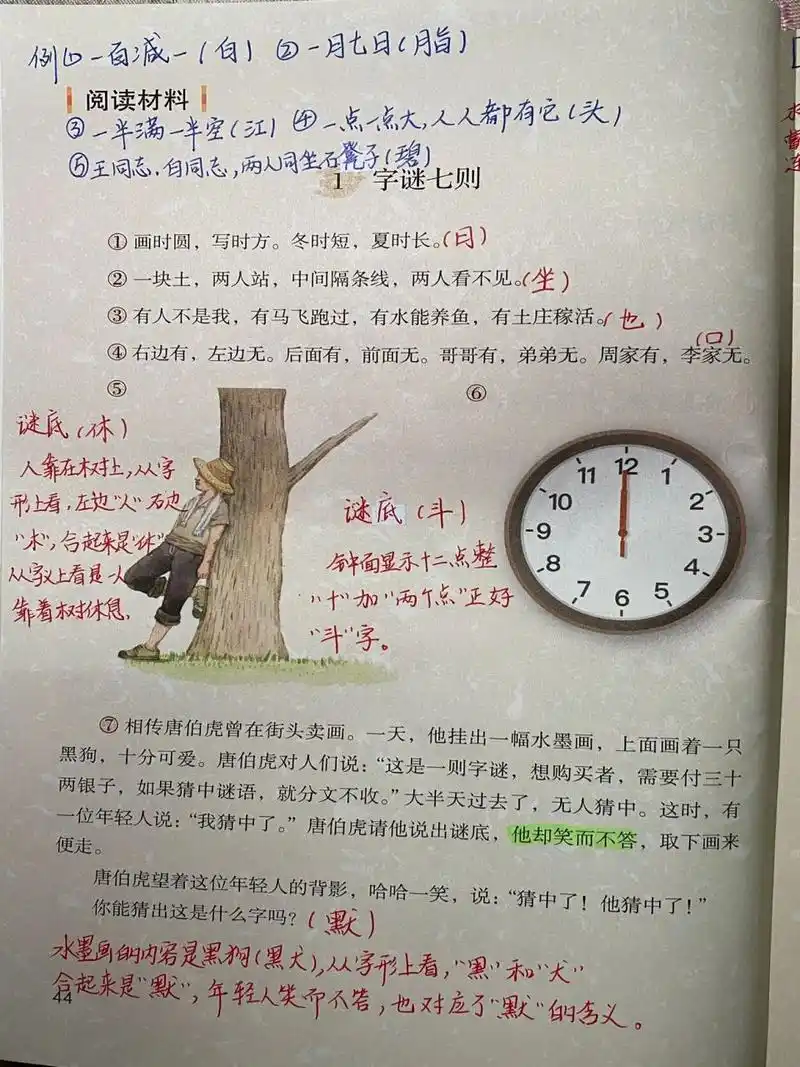 例① 一百减一(白) ② 一月七日(脂)
阅读材料
③ 一半满一半空(江) ④ 一点一点大,人人都有它(头)
⑤ 王同志,白同志,两人同坐石凳子(碧)
1 字谜七则
① 画时圆,写时方。冬时短,夏时长。(日)
② 一块土,两人站,中间隔条线,两人看不见。(坐)
③ 有人不是我,有马飞跑过,有水能养鱼,有土庄稼活。(也)
(口)
④ 右边有,左边无。后面有,前面无。哥哥有,弟弟无。周家有,李家无。
⑤
谜底(休)
人靠在树上,从字
形上看,左边"人"右边
"木",合起来是"休"
从字义上看是一人
靠着树休息.
⑥
谜底(斗)
钟面显示十二点整
"十"加"两个点"正好
"斗"字。
11 12 1
10 2
9 3
8 4
7 6 5
⑦ 相传唐伯虎曾在街头卖画。一天,他挂出一幅水墨画,上面画着一只
黑狗,十分可爱。唐伯虎对人们说:“这是一则字谜,想购买者,需要付三十
两银子,如果猜中谜语,就分文不收。”大半天过去了,无人猜中。这时,有
一位年轻人说:“我猜中了。”唐伯虎请他说出谜底,他却笑而不答,取下画来
便走。
唐伯虎望着这位年轻人的背影,哈哈一笑,说:“猜中了!他猜中了!”
你能猜出这是什么字吗?(默)
水墨画的内容是黑狗(黑犬),从字形上看,"黑"和"犬"
合起来是"默",年轻人笑而不答,也对应了"默"的含义。
44